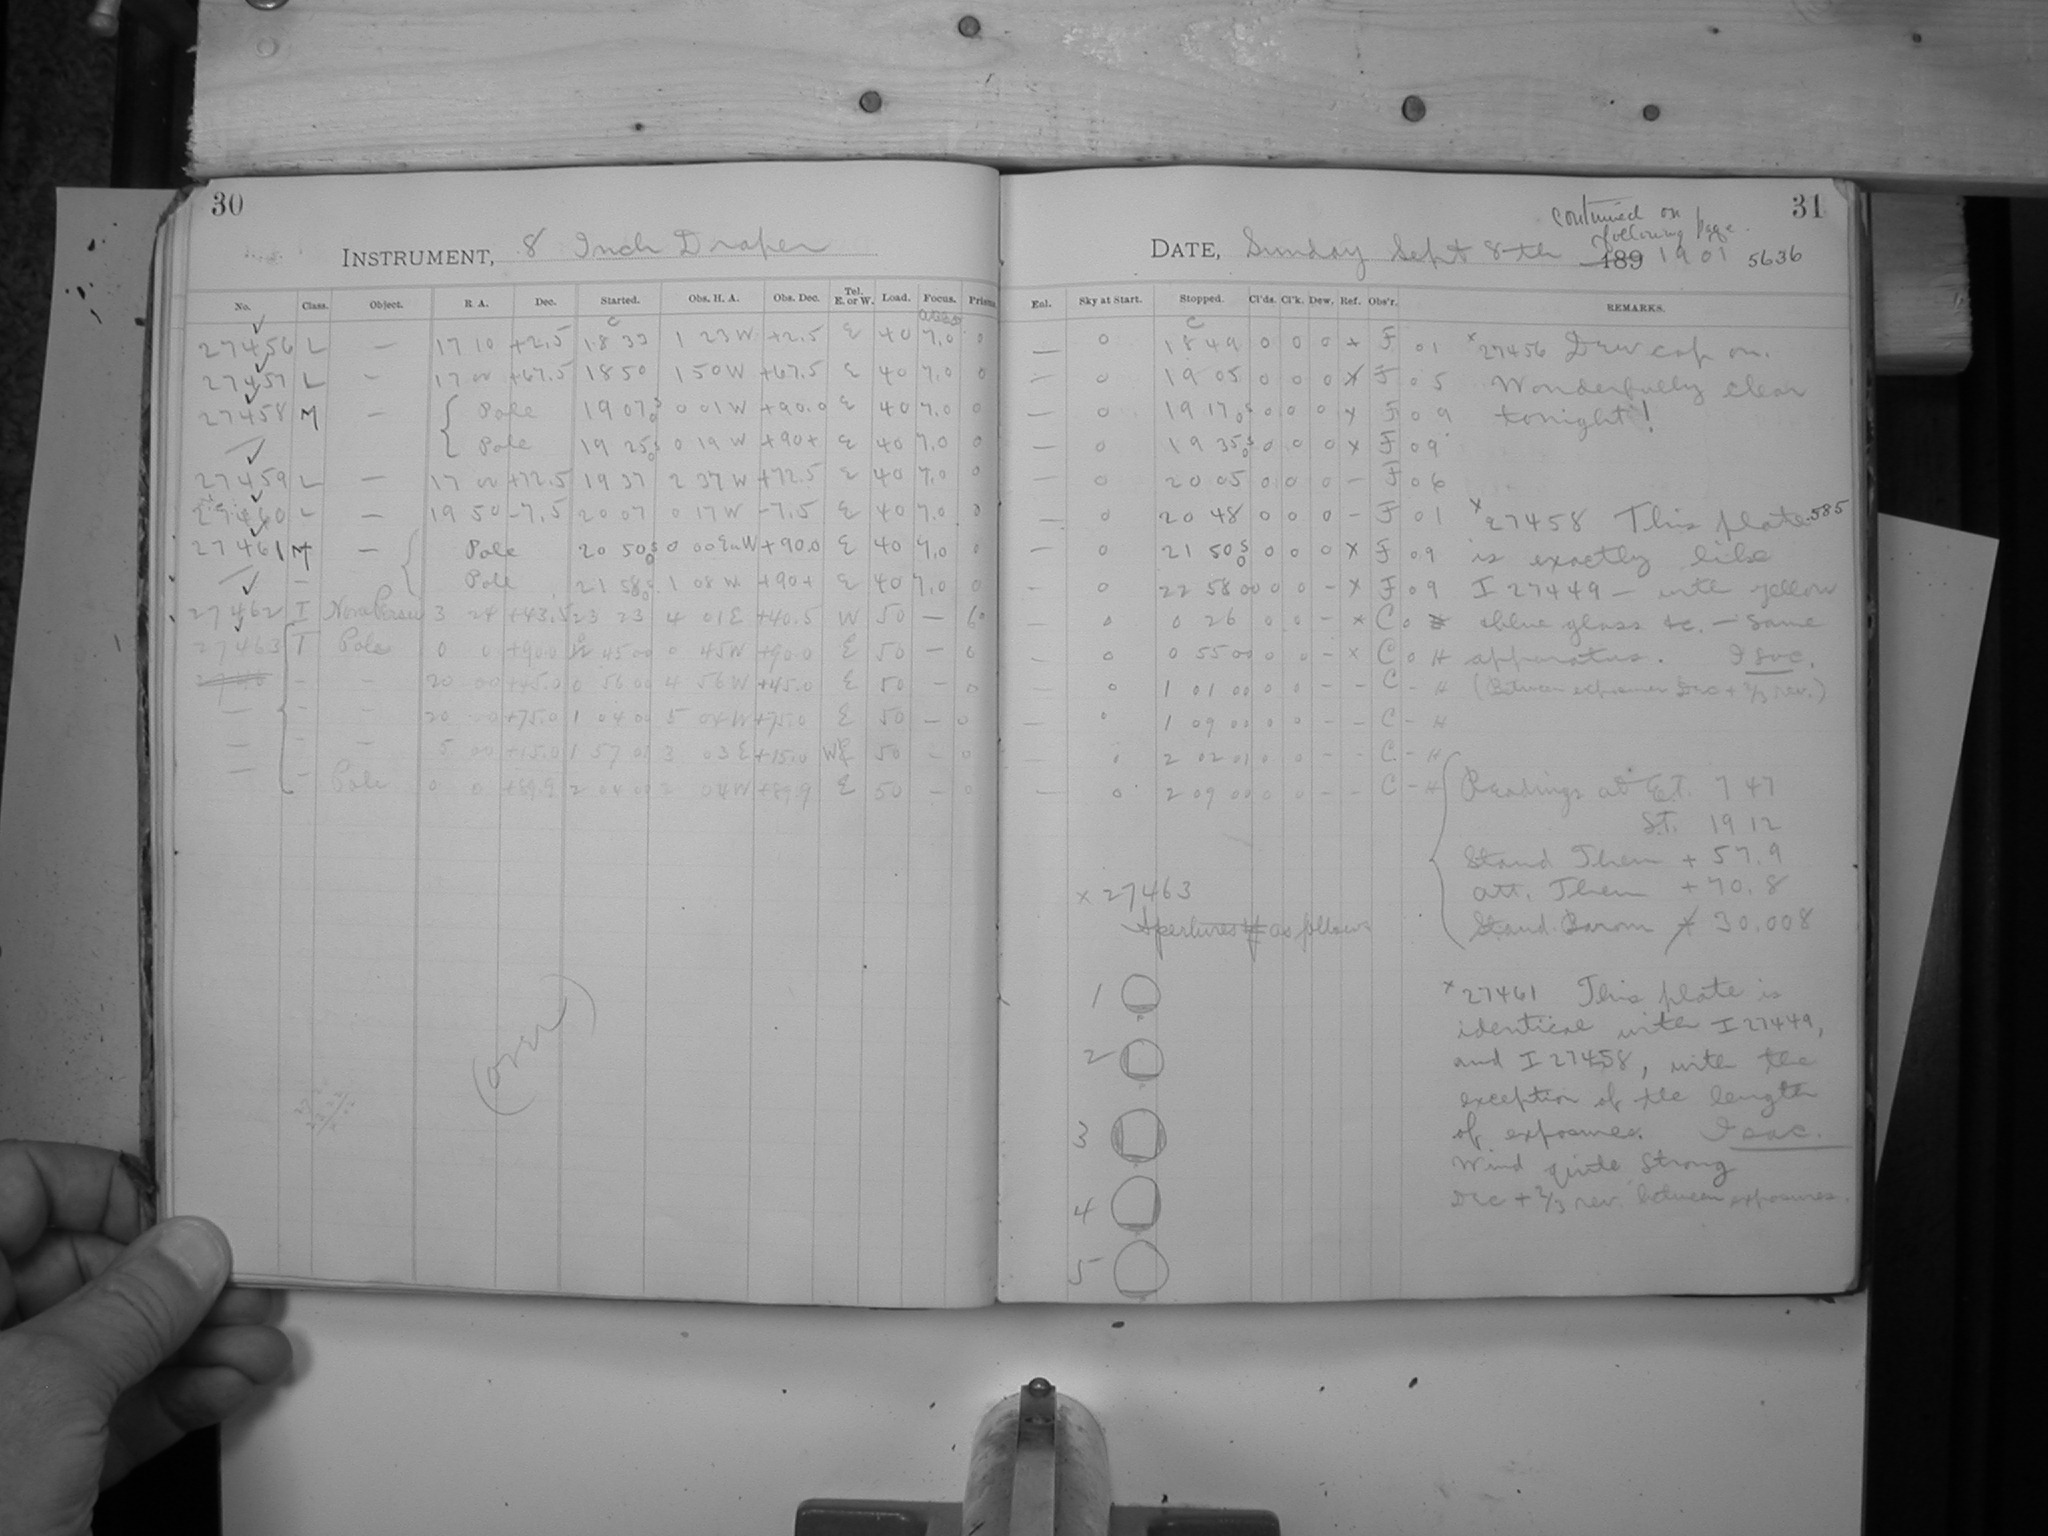 30
INSTRUMENT, 8 Inch Draper
No. Class. Object. R A. Dec. Started. Obs. H. A. Obs. Dec. Tel. E. or W. Load. Focus. Prisms
27456 L — 17 10 +2.5 18 33 1 23 W +2.5 E 40 7.0 0
27457 L — 17 00 +67.5 18 50 1 50 W +67.5 E 40 7.0 0
27458 M — Pole 19 07 0 0 01 W +90.0 E 40 7.0 0
Pole 19 25 0 0 19 W +90+ E 40 7.0 0
27459 L — 17 00 +72.5 19 37 2 37 W +72.5 E 40 7.0 0
27460 L — 19 50 -7.5 20 07 0 17 W -7.5 E 40 7.0 0
27461 M — Pole 20 50 0 0 00 E or W +90.0 E 40 7.0 0
— Pole 21 58 1 08 W +90+ E 40 7.0 0
27462 I Nova Persei 3 24 +43.5 23 23 4 01 E +40.5 W 50 —
27463 I Pole 0 0 +90.0 45 00 0 45 W +90.0 E 50 — 0
— — 20 00 +45.0 0 56 00 4 56 W +45.0 E 50 — 0
— — — 20 00 +75.0 1 04 00 5 04 W +75.0 E 50 — 0
— — — 5 00 +15.0 1 57 01 3 03 E +15.0 W 50 — 0
— — Pole 0 0 +89.9 2 04 00 2 04 W +89.9 E 50 — 0
(over)
31
continued on
following page.
DATE, Sunday Sept 8th 189 1901 5636
Enl. Sky at Start. Stopped. Cl'ds. Cl'k. Dew. Ref. Obs'r. REMARKS.
— 0 18 49 0 0 0 x F 01 x 27456 Dew cap on.
— 0 19 05 0 0 0 x F 05 Wonderfully clear
— 0 19 17 0 0 0 0 x F 09 tonight!
— 0 19 35 0 0 0 0 x F 09
— 0 20 05 0 0 0 — F 06
— 0 20 48 0 0 0 — F 01 x 27458 This plate 585
— 0 21 50 0 0 0 0 x F 09 is exactly like
— 0 22 58 00 0 0 — x F 09 I 27449 — with yellow
— 0 0 26 0 0 — x C 0 & blue glass &c. — same
— 0 0 55 00 0 0 — x C 0 H apparatus.
— 0 1 01 00 0 0 — — C — H (Between exposures Dec + 2/3 rev.)
— 0 1 09 00 0 0 — — C — H
— 0 2 02 01 0 0 — — C — H
— 0 2 09 00 0 0 — — C — H Readings at E.T. 7 47
S.T. 19 12
Stand Them + 57.9
Att. Them + 70.8
Stand. Barom 30.008
x 27463
Apertures as follows
1
2
3
4
5
x 27461 This plate is
identical with I 27449,
and I 27458, with the
exception of the length
of exposures.
Wind quite strong
Dec + 2/3 rev. between exposures.